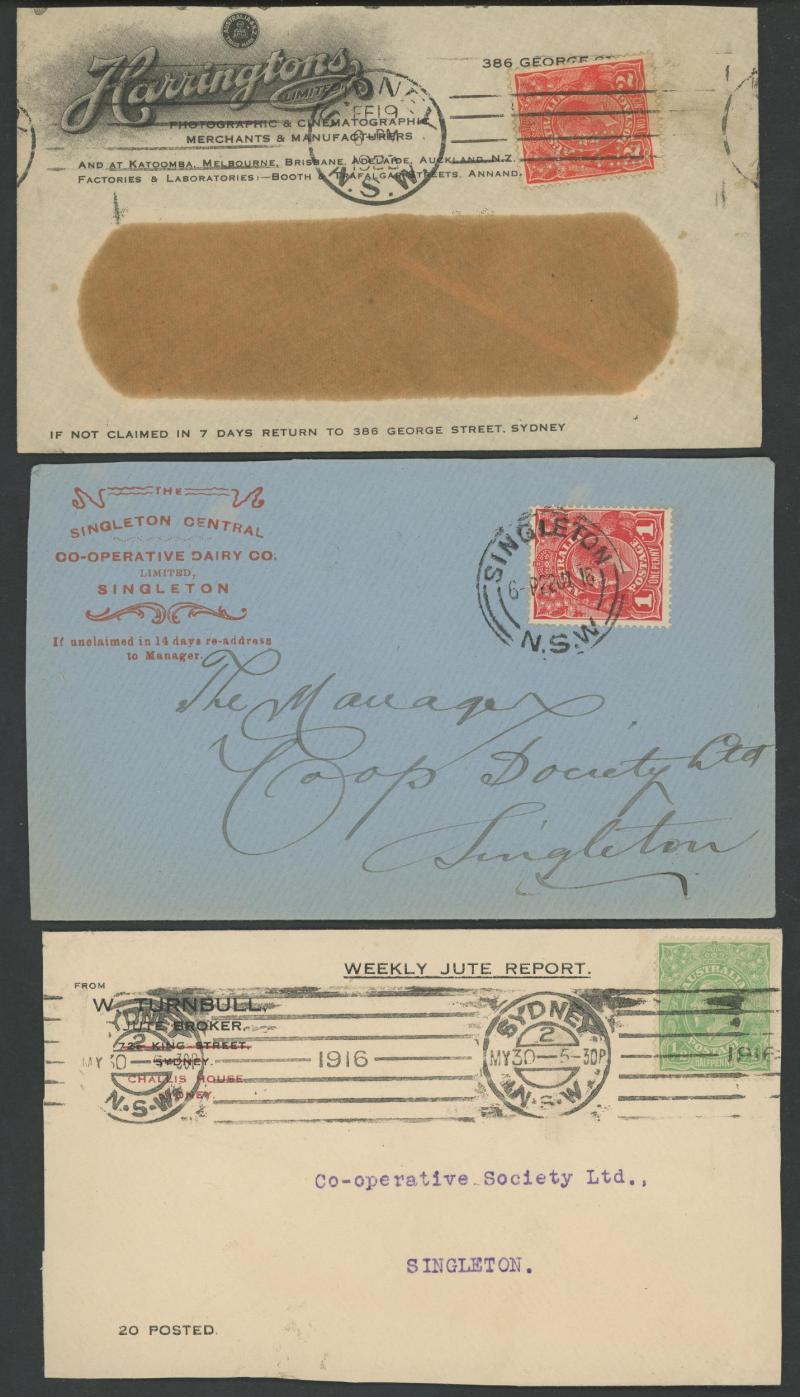 Harringtons
LIMITED
386 GEORGE
PHOTOGRAPHIC & CINEMATOGRAPHIC
MERCHANTS & MANUFACTURERS
AND AT KATOOMBA, MELBOURNE, BRISBANE, ADELAIDE, AUCKLAND, N.Z.
FACTORIES & LABORATORIES:—BOOTH & TRAFALGAR STREETS, ANNAND
SYDNEY
FE19
PM
N.S.W
2 2
IF NOT CLAIMED IN 7 DAYS RETURN TO 386 GEORGE STREET, SYDNEY
THE
SINGLETON CENTRAL
CO-OPERATIVE DAIRY CO.
LIMITED,
SINGLETON
If unclaimed in 14 days re-address
to Manager.
SINGLETON
N.S.W
AUSTRALIA
POSTAGE
1 ONE PENNY 1
The Manager
Coop Society Ltd
Singleton
WEEKLY JUTE REPORT.
FROM
W. TURNBULL,
JUTE BROKER,
72 KING STREET,
SYDNEY.
CHALLIS HOUSE.
SYDNEY.
SYDNEY
2
MY 30 5-30P
N.S.W.
1916
SYDNEY
2
MY 30 5-30P
N.S.W
1916
AUSTRALIA
POSTAGE
HALFPENNY
Co-operative Society Ltd.,
SINGLETON.
20 POSTED.